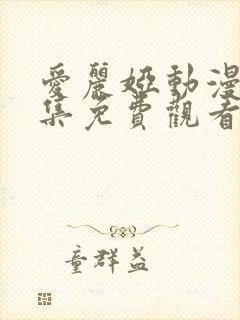 愛麗婭動漫
集免費觀看
童群益